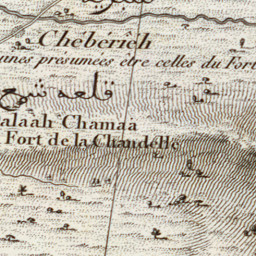 Chébérieh
unes présumées être celles du Fort
قلعه شمع
alaàh Chamaà
Fort de la Chandelle